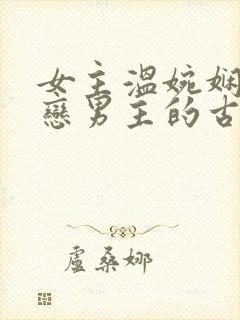 女主溫婉嫻
戀男主的古
盧桑娜